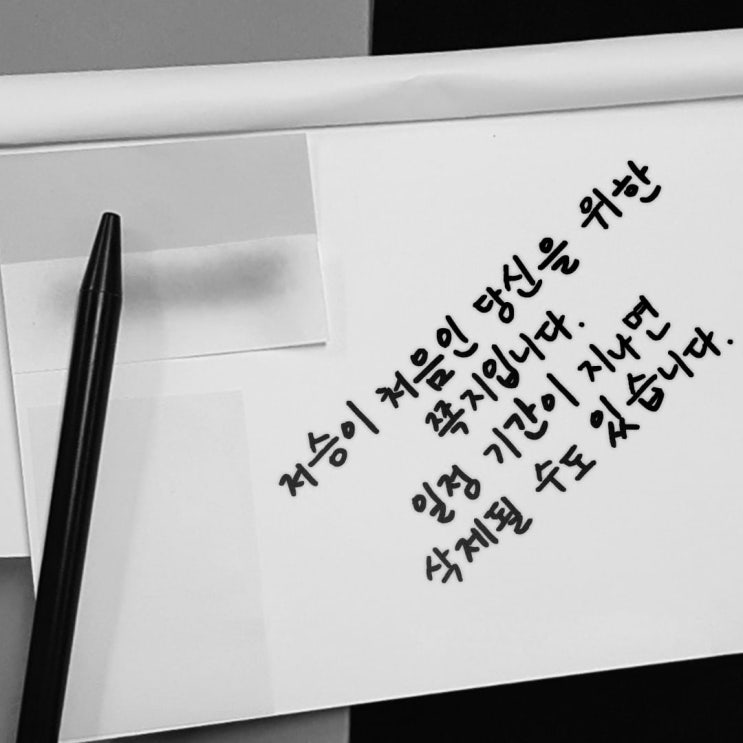 저승이 처음인 당신을 위한
쪽지입니다.
일정 기간이 지나면
삭제될 수도 있습니다.